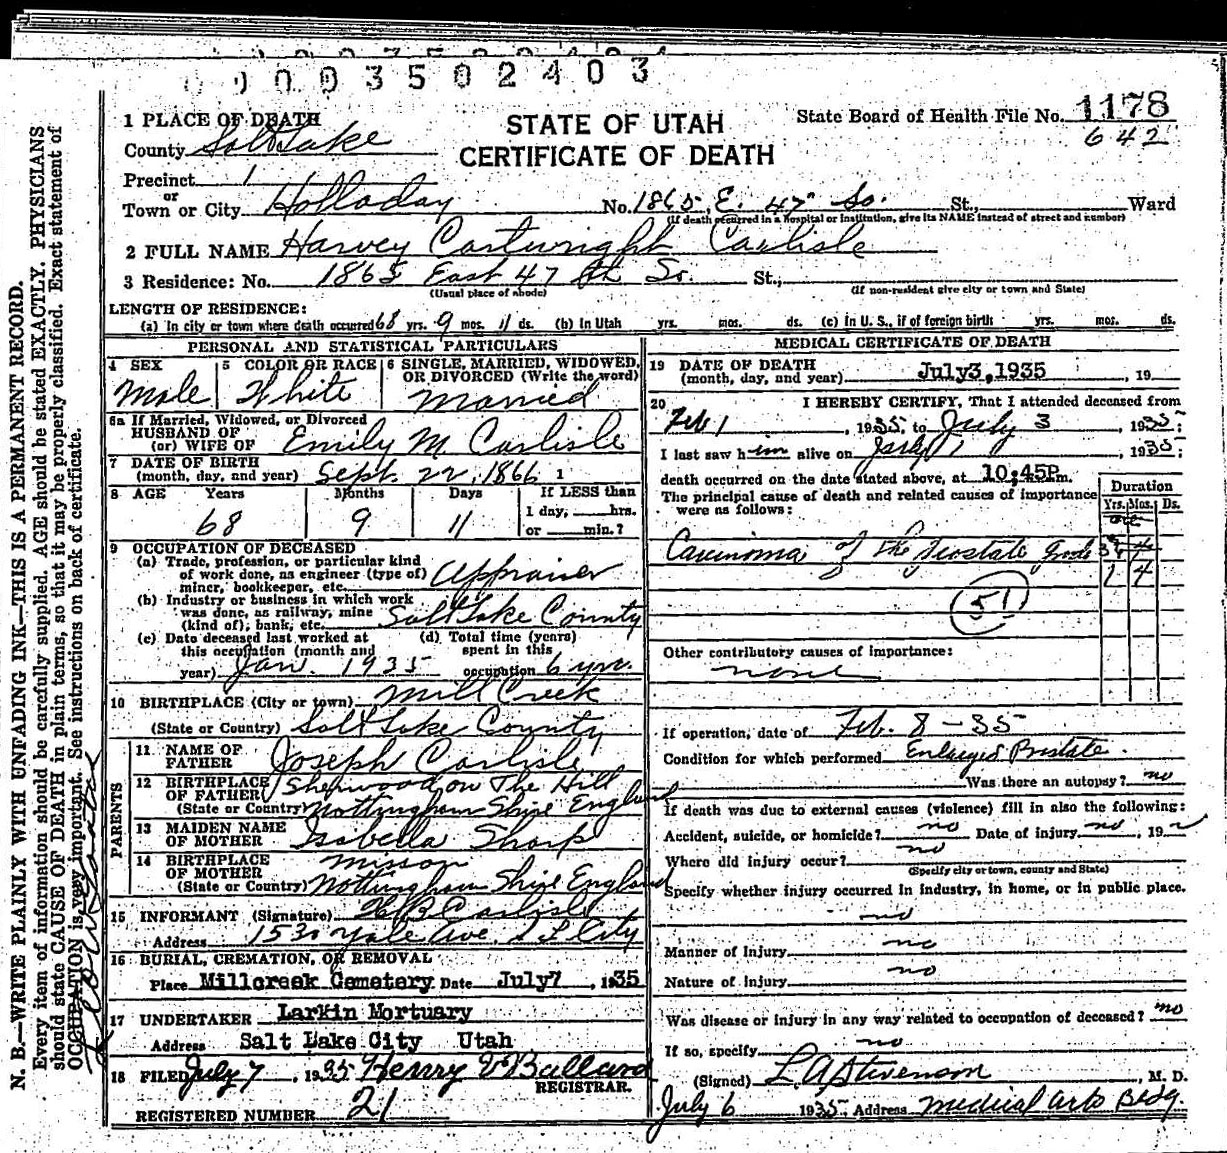 0003502403
1 PLACE OF DEATH
STATE OF UTAH
CERTIFICATE OF DEATH
State Board of Health File No. 1178
642
County Salt Lake
Precinct 1
or
Town or City Holladay No. 1865 E. 47 So. St., Ward
(If death occurred in a hospital or institution, give its NAME instead of street and number)
2 FULL NAME Harvey Cartwright Carlisle
3 Residence: No. 1865 East 47 th So. St.,
(Usual place of abode) (If non-resident give city or town and State)
LENGTH OF RESIDENCE:
(a) In city or town where death occurred 68 yrs. 9 mos. 11 ds. (b) In Utah yrs. mos. ds. (c) in U. S., if of foreign birth yrs. mos. ds.
PERSONAL AND STATISTICAL PARTICULARS
4 SEX
Male
5 COLOR OR RACE
White
6 SINGLE, MARRIED, WIDOWED,
OR DIVORCED (Write the word)
Married
6a If Married, Widowed, or Divorced
HUSBAND OF
(or) WIFE OF Emily M. Carlisle
7 DATE OF BIRTH
(month, day, and year) Sept. 22, 1866 1
8 AGE Years Months Days If LESS than
1 day, hrs.
68 9 11 or min.?
9 OCCUPATION OF DECEASED
(a) Trade, profession, or particular kind
of work done, as engineer (type of)
miner, bookkeeper, etc. Appraiser
(b) Industry or business in which work
was done, as railway, mine
(kind of), bank, etc. Salt Lake County
(c) Date deceased last worked at
this occupation (month and
year) Jan. 1935
(d) Total time (years)
spent in this
occupation 6 yrs.
10 BIRTHPLACE (City or town) Mill Creek
(State or Country) Salt Lake County
PARENTS
11 NAME OF
FATHER Joseph Carlisle
12 BIRTHPLACE
OF FATHER Sherwood on The Hill
(State or Country) Nottingham Shire England
13 MAIDEN NAME
OF MOTHER Isabella Sharp
14 BIRTHPLACE
OF MOTHER Misson
(State or Country) Nottingham Shire England
15 INFORMANT (Signature) H B Carlisle
Address 1530 Yale Ave. S L City
16 BURIAL, CREMATION, OR REMOVAL
Place Millcreek Cemetery Date July 7, 1935
17 UNDERTAKER Larkin Mortuary
Address Salt Lake City Utah
18 FILED July 7, 1935 Henry Ballard
REGISTRAR.
REGISTERED NUMBER 21
MEDICAL CERTIFICATE OF DEATH
19 DATE OF DEATH
(month, day, and year) July 3, 1935, 19
20 I HEREBY CERTIFY, That I attended deceased from
Feb 1, 1935, to July 3, 1935;
I last saw him alive on July 1, 1935;
death occurred on the date stated above, at 10:45P.m.
The principal cause of death and related causes of importance
were as follows:
Duration
Yrs. Mos. Ds.
Carcinoma of the Prostate
1 4
51
Other contributory causes of importance:
none
If operation, date of Feb. 8 - 35
Condition for which performed Enlarged Prostate.
Was there an autopsy? no
If death was due to external causes (violence) fill in also the following:
Accident, suicide, or homicide? no Date of injury no, 19
Where did injury occur? no
(Specify city or town, county and State)
Specify whether injury occurred in industry, in home, or in public place.
no
Manner of Injury no
Nature of Injury no
Was disease or injury in any way related to occupation of deceased? no
If so, specify no
(Signed) L. A. Stevenson, M. D.
July 6 1935 Address Medical Arts Bldg.
N. B.—WRITE PLAINLY WITH UNFADING INK—THIS IS A PERMANENT RECORD.
Every item of information should be carefully supplied. AGE should be stated EXACTLY. PHYSICIANS
should state CAUSE OF DEATH in plain terms, so that it may be properly classified. Exact statement of
OCCUPATION is very important. See instructions on back of certificate.